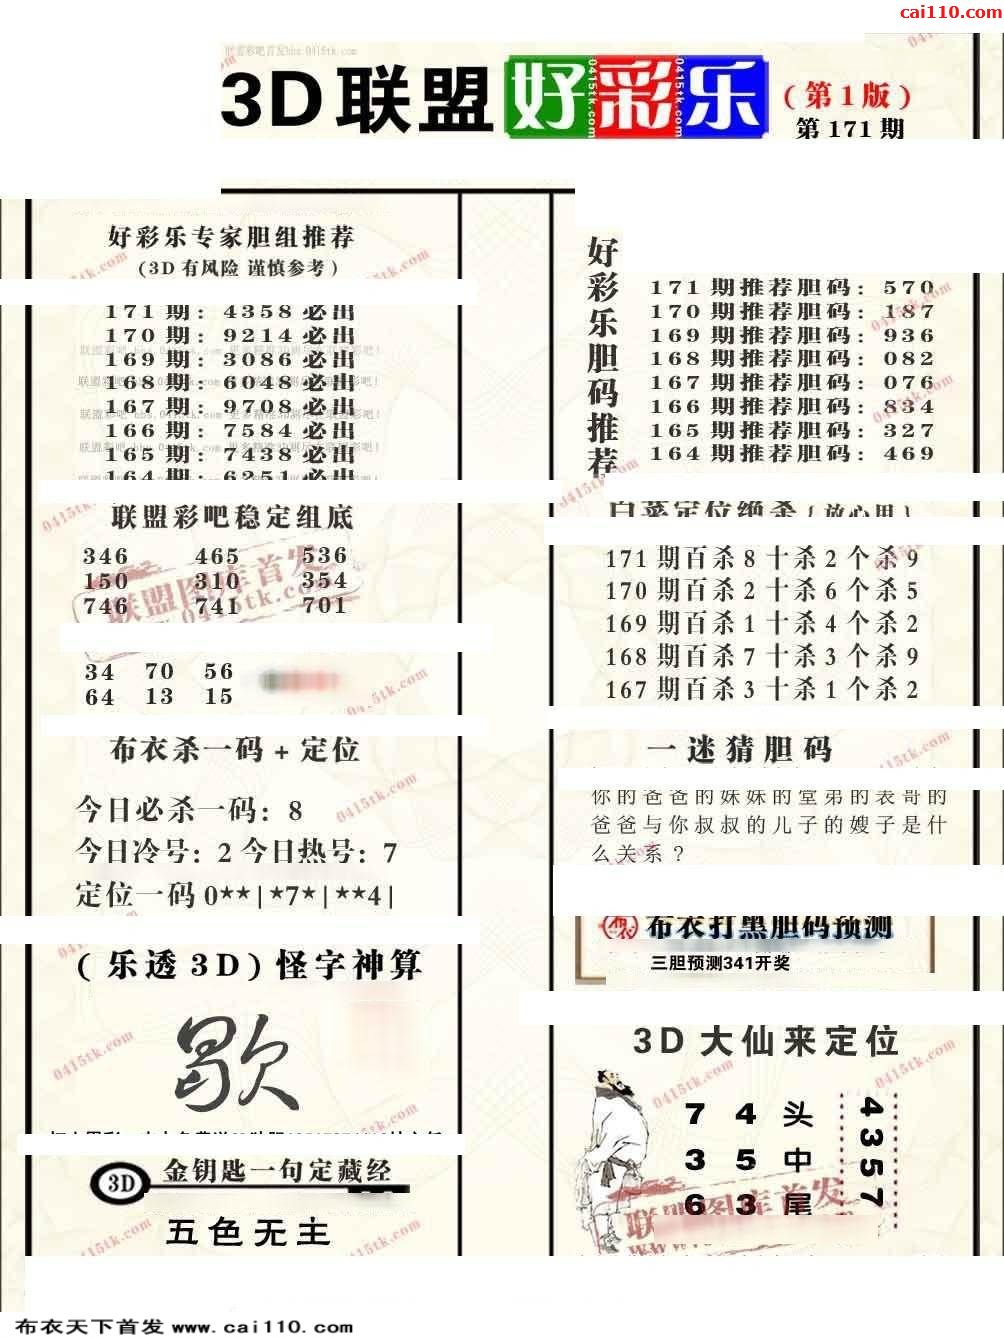 cai110.com
3D联盟好彩乐
(第1版)
第171期
好彩乐专家胆组推荐
(3D有风险 谨慎参考)
171期: 4358必出
170期: 9214必出
169期: 3086必出
168期: 6048必出
167期: 9708必出
166期: 7584必出
165期: 7438必出
164期: 6251必出
联盟彩吧稳定组底
346 465 536
150 310 354
746 741 701
34 70 56
64 13 15
布衣杀一码+定位
今日必杀一码: 8
今日冷号: 2 今日热号: 7
定位一码 0**|*7*|**4|
(乐透3D)怪字神算
歇
3D 金钥匙一句定藏经
五色无主
好彩乐胆码推荐
171期推荐胆码: 570
170期推荐胆码: 187
169期推荐胆码: 936
168期推荐胆码: 082
167期推荐胆码: 076
166期推荐胆码: 834
165期推荐胆码: 327
164期推荐胆码: 469
白菜定位绝杀{放心用}
171期百杀8十杀2个杀9
170期百杀2十杀6个杀5
169期百杀1十杀4个杀2
168期百杀7十杀3个杀9
167期百杀3十杀1个杀2
一迷猜胆码
你的爸爸的妹妹的堂弟的表哥的
爸爸与你叔叔的儿子的嫂子是什
么关系?
布衣打黑胆码预测
三胆预测341开奖
3D大仙来定位
7 4 头
3 5 中
6 3 尾
4357
联盟图库首发
布衣天下首发 www.cai110.com